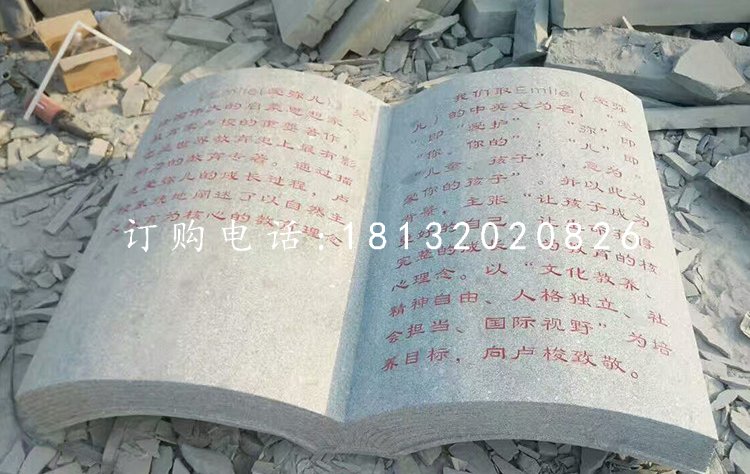 Emile(爱弥儿)是
法国伟大的启蒙思想家
教育家卢梭的重要著作,
也是世界教育史上最有影
响力的教育专著。通过描
述爱弥儿的成长过程,卢
梭系统地阐述了以自然主
义教育为核心的教育理念
我们取Emile(爱弥
儿)的中英文为名,"爱
"即"爱护";"弥"即
"你、你的";"儿"即
"儿童、孩子",意为"
爱你的孩子"。并以此为
背景,主张"让孩子成为
完整的
为教育的核
心理念。以"文化教养、
精神自由、人格独立、社
会担当、国际视野"为培
养目标,向卢梭致敬。
订购电话:18132020826